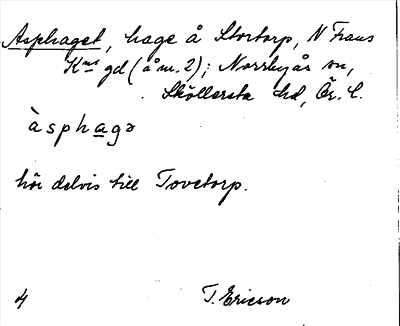 Asphaget, hage å Stortorp, N Frans
Kns gd (å m. 2); Norrbyås sn,
Sköllersta hd, Ör. l.
àsphagə
hör delvis till Tovetorp.
4 T. Ericson